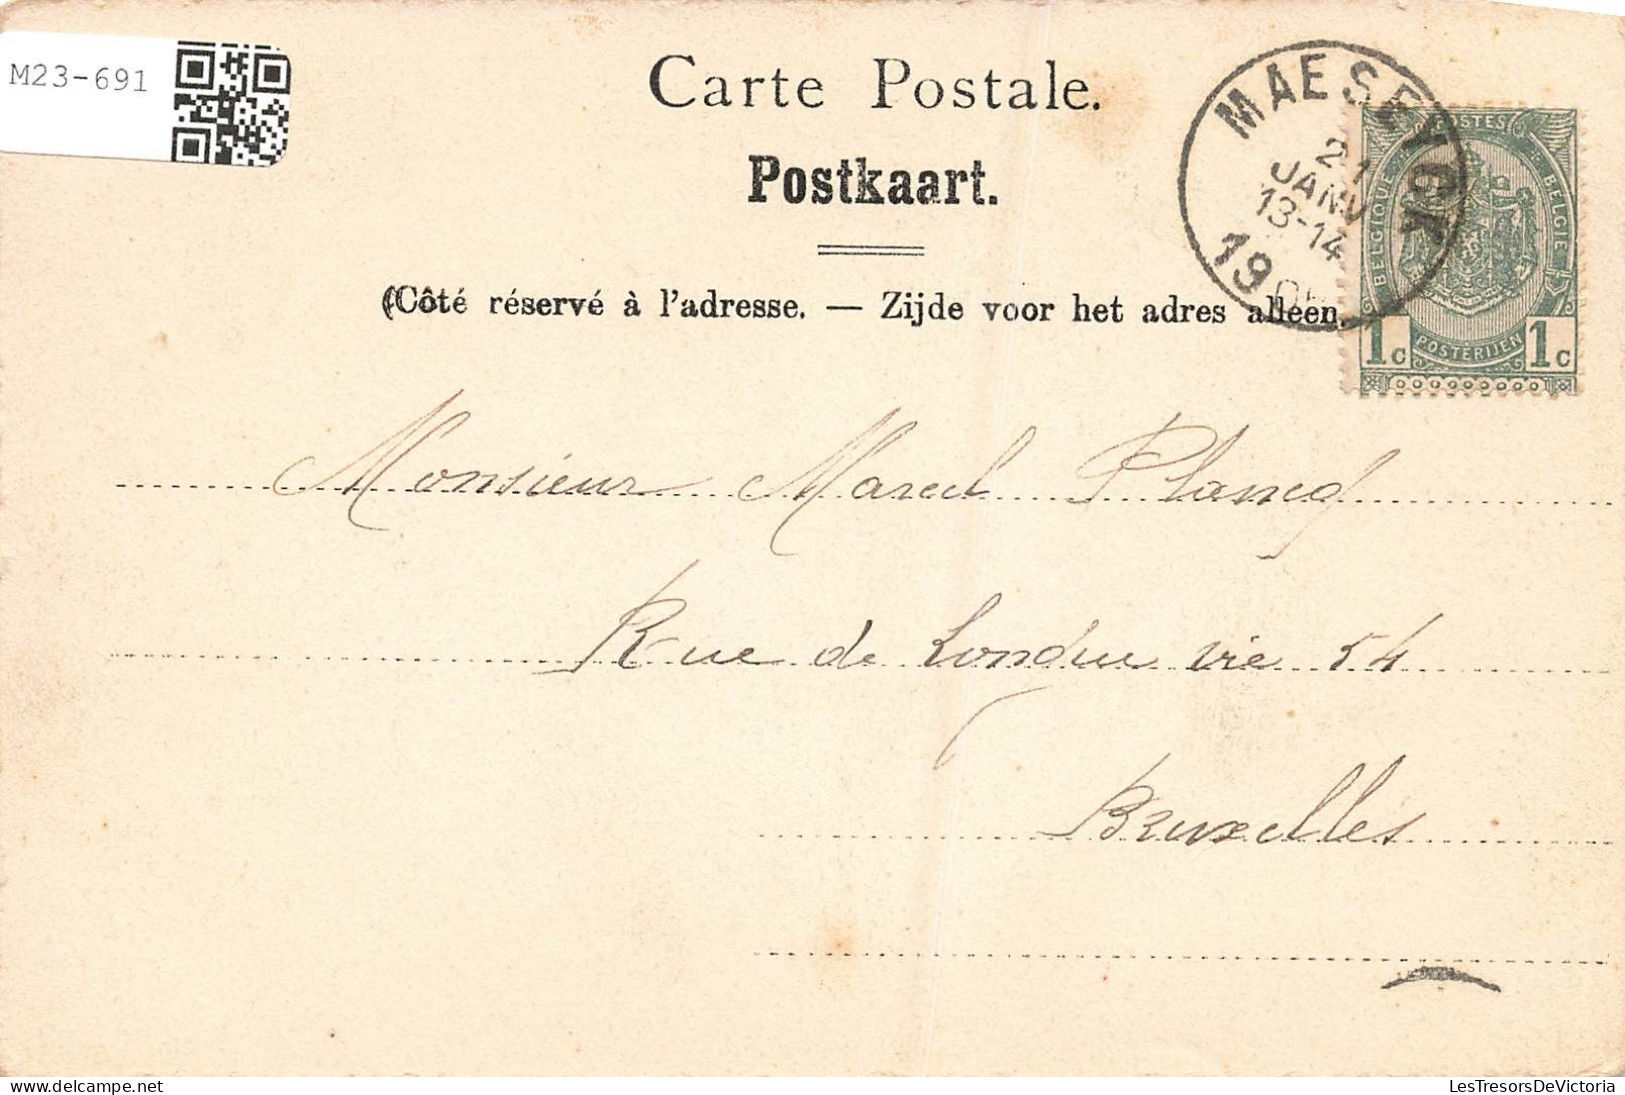 M23-691
Carte Postale.
Postkaart.
(Côté réservé à l'adresse. — Zijde voor het adres alleen.
MAESEYCK
21
JANV
13-14
19
POSTES
BELGIQUE
BELGIE
POSTERIJEN
1c 1c
Monsieur Marcel Plancq
Rue de 54
Bruxelles
LesTresorsDeVictoria